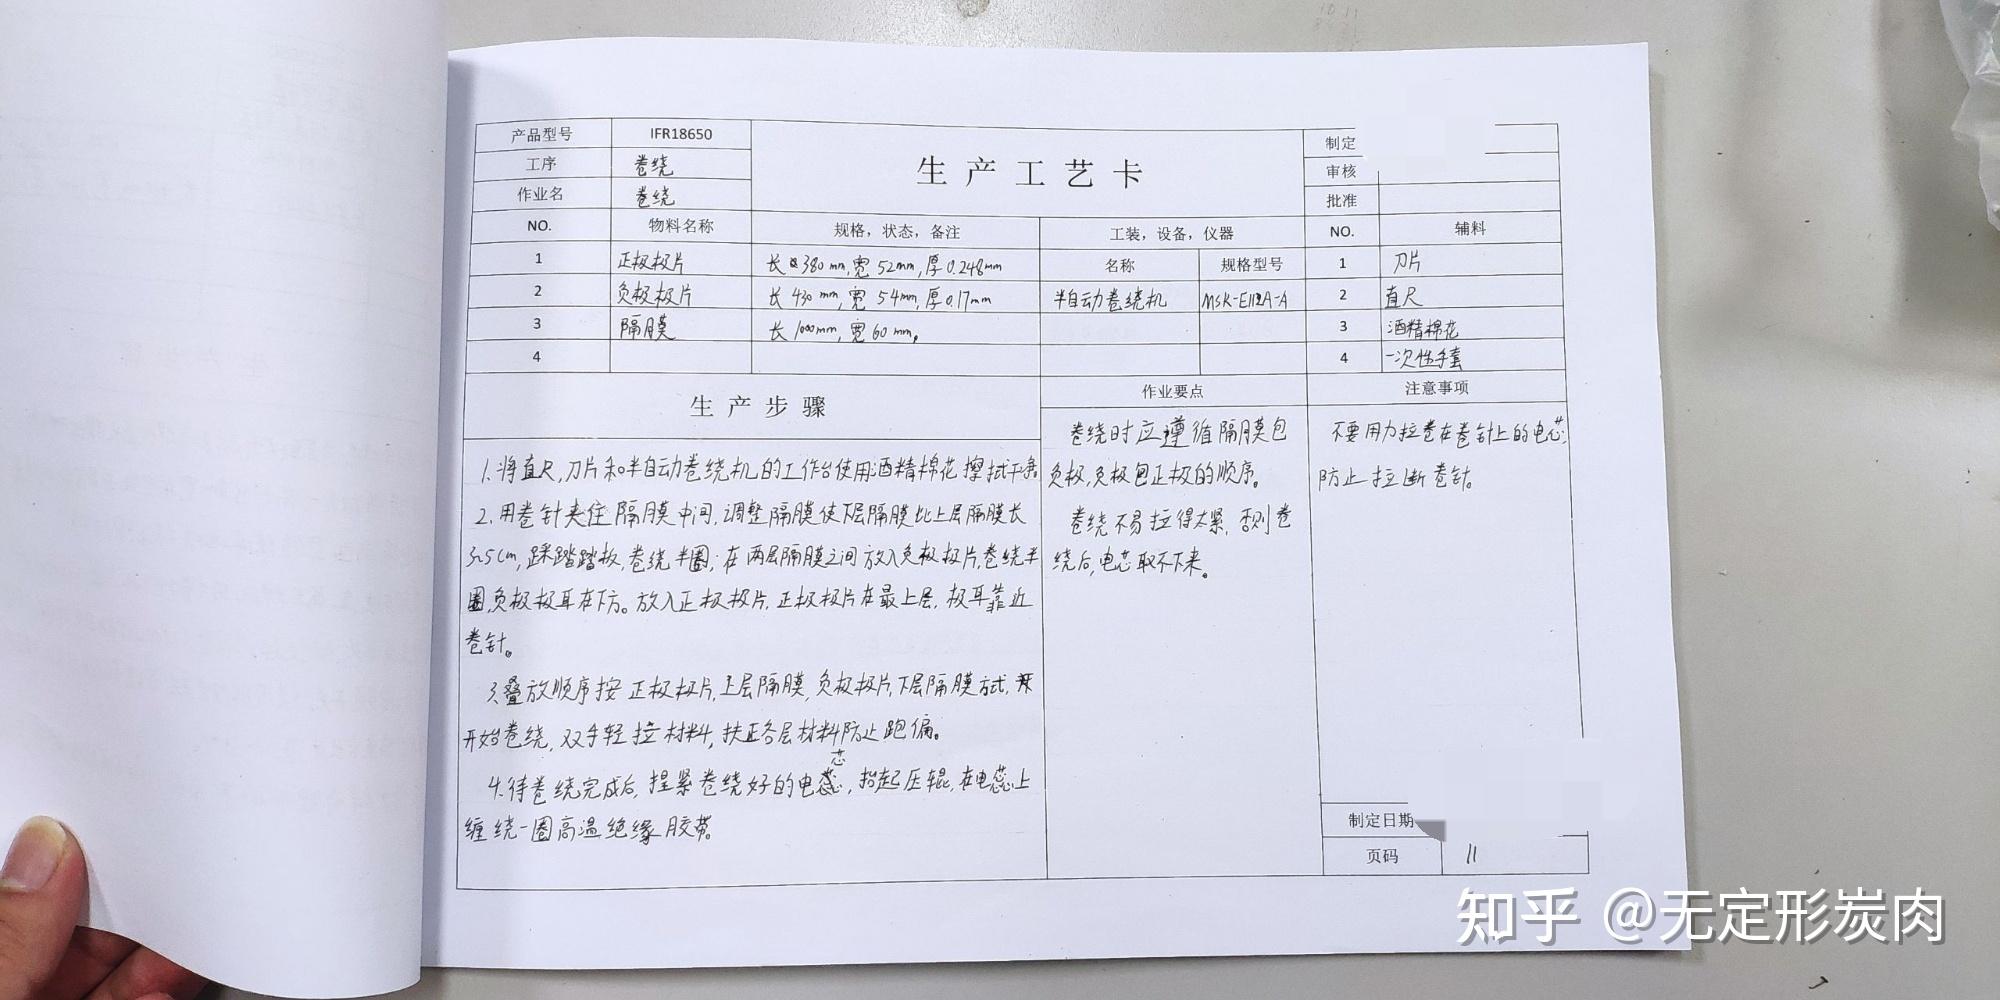 产品型号 IFR18650 生产工艺卡 制定
工序 卷绕 审核
作业名 卷绕 批准
NO. 物料名称 规格，状态，备注 工装，设备，仪器 NO. 辅料
1 正极极片 长380mm,宽52mm,厚0.248mm 名称 规格型号 1 刀片
2 负极极片 长430mm,宽54mm,厚0.17mm 半自动卷绕机 MSK-E112A-A 2 直尺
3 隔膜 长1000mm,宽60mm。 3 酒精棉花
4 4 一次性手套
生产步骤
1.将直尺,刀片和半自动卷绕机的工作台使用酒精棉花擦拭干净
2.用卷针夹住隔膜中间,调整隔膜使下层隔膜比上层隔膜长
3~5cm,踩踏踏板,卷绕半圈;在两层隔膜之间放入负极极片,卷绕半
圈,负极极耳在下方。放入正极极片,正极极片在最上层,极耳靠近
卷针。
3.叠放顺序按正极极片,上层隔膜,负极极片,下层隔膜方式,
开始卷绕,双手轻拉材料,扶正各层材料防止跑偏。
4.待卷绕完成后,捏紧卷绕好的电芯,抬起压辊,在电芯上
缠绕一圈高温绝缘胶带。
作业要点
卷绕时应遵循隔膜包
负极,负极包正极的顺序。
卷绕不易拉得太紧,否则卷
绕后,电芯取不下来。
注意事项
不要用力拉卷在卷针上的电芯,
防止拉断卷针。
制定日期
页码 11
知乎 @无定形炭肉